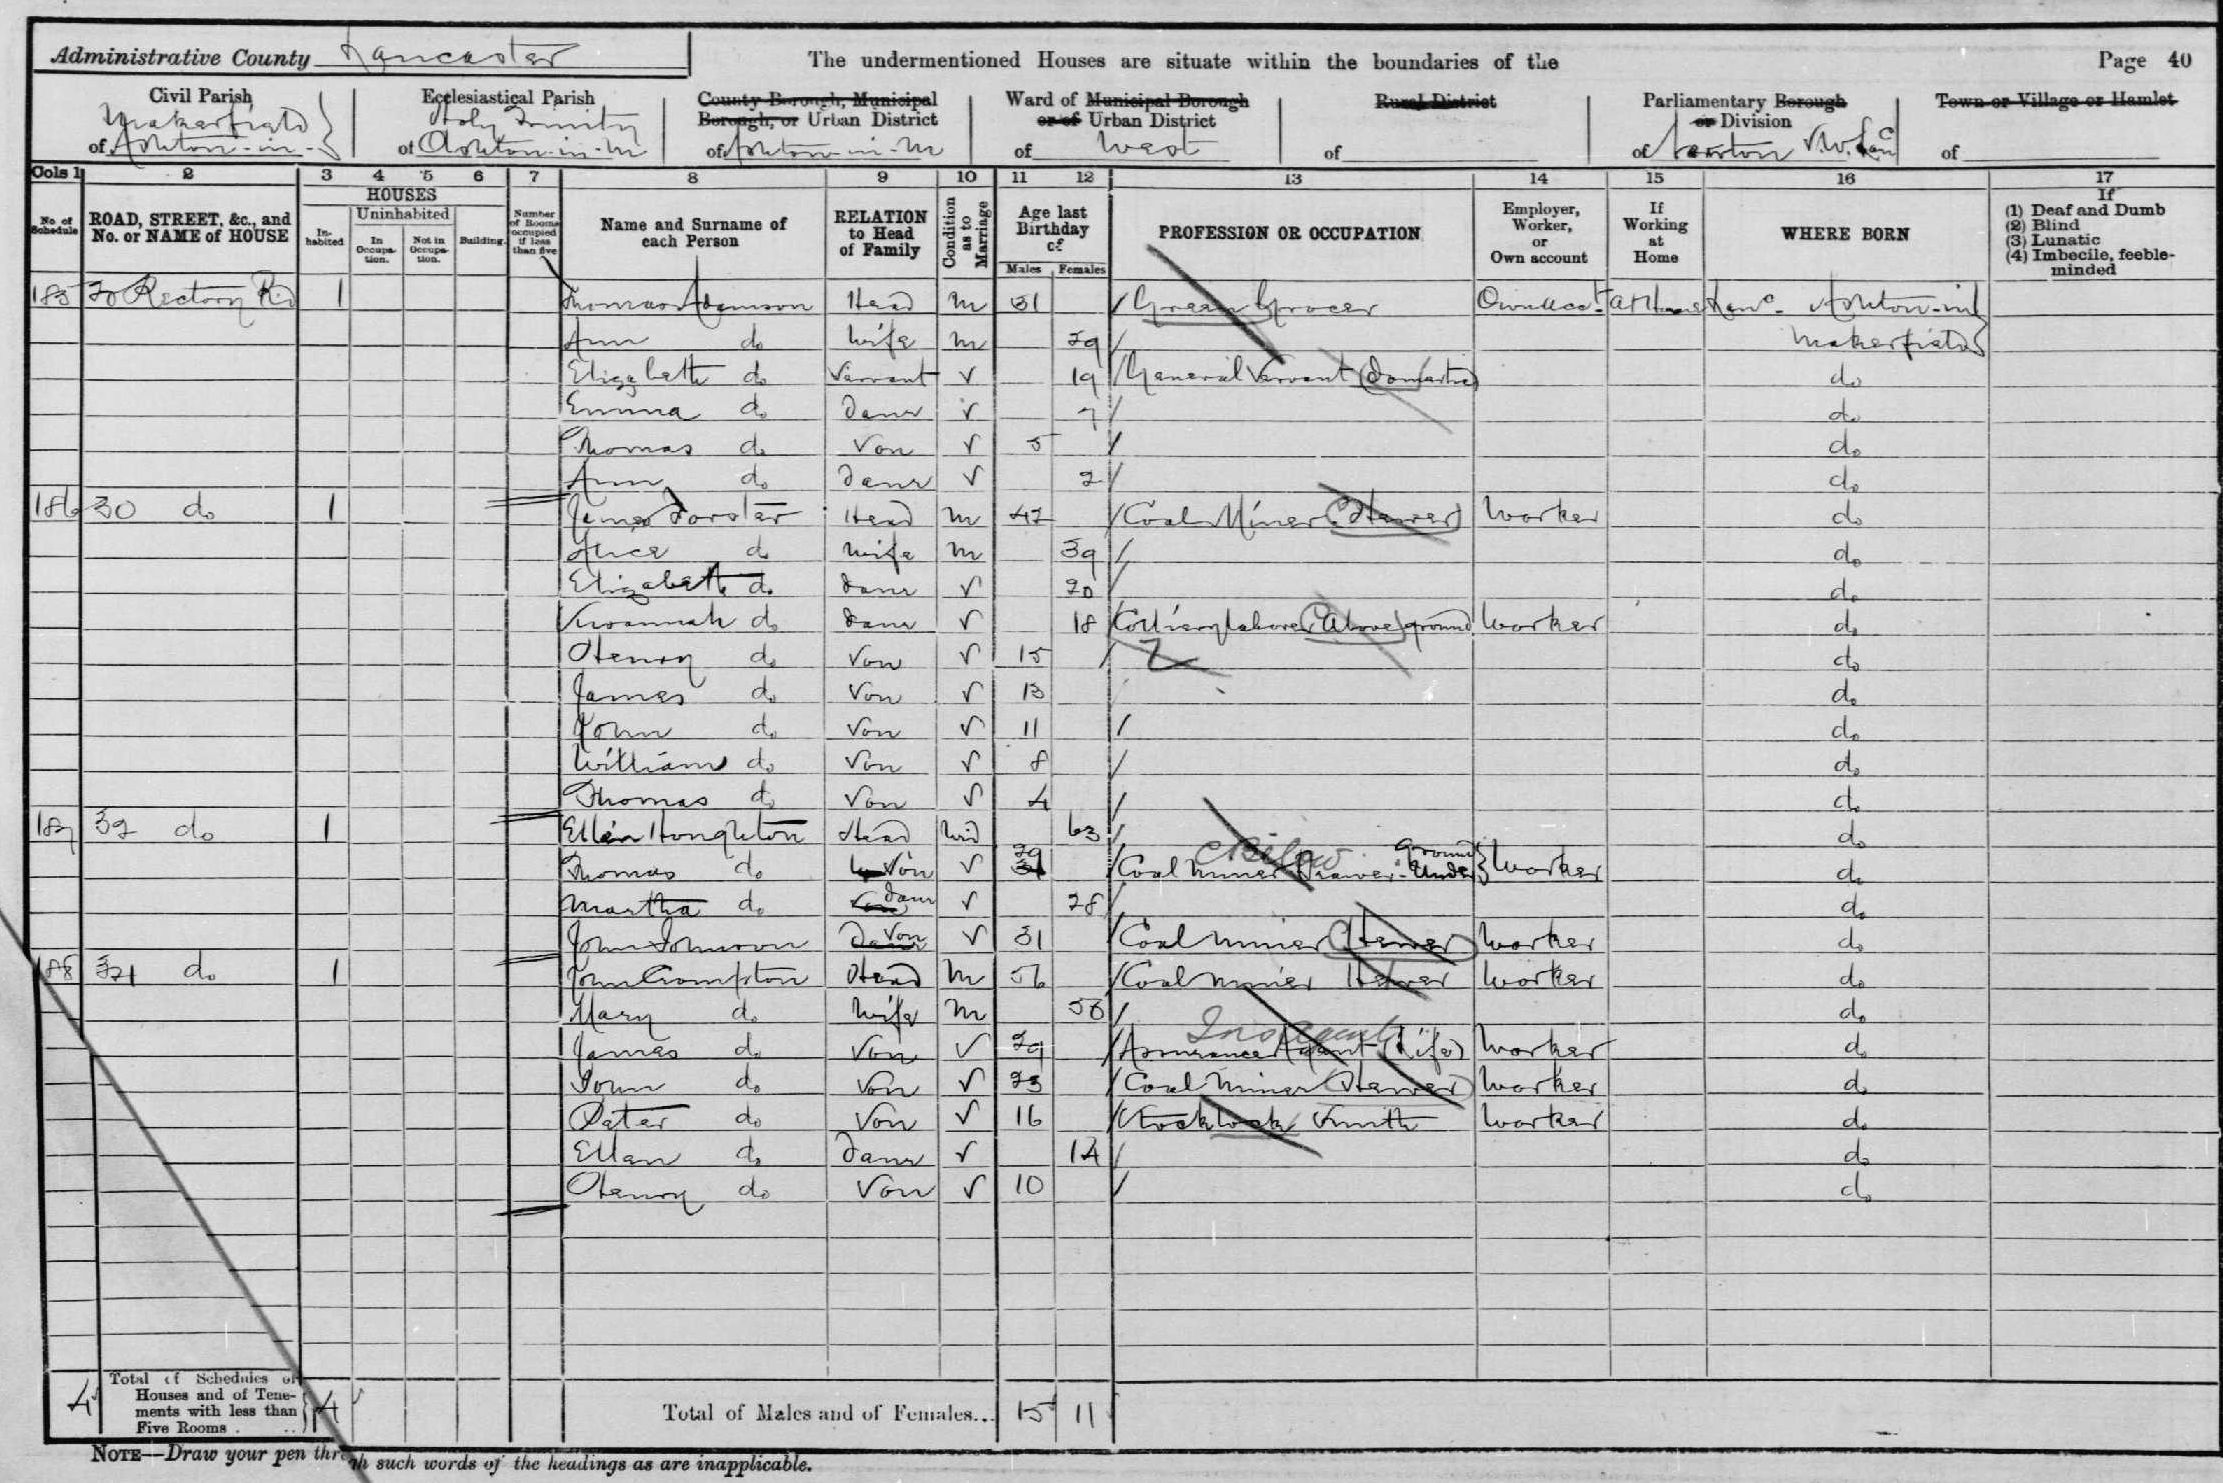 Administrative County Lancaster
The undermentioned Houses are situate within the boundaries of the
Page 40
Civil Parish
of Ashton-in-Makerfield
Ecclesiastical Parish
Holy Trinity
of Ashton-in-M
County Borough, Municipal
Borough, or Urban District
of Ashton-in-M
Ward of Municipal Borough
or of Urban District
of West
Rural District
of
Parliamentary Borough
or Division
of Newton S.W. Lanc
Town or Village or Hamlet
of
Cols 1 2 3 4 5 6 7 8 9 10 11 12 13 14 15 16 17
No. of Schedule
ROAD, STREET, &c., and No. or NAME of HOUSE
HOUSES
Inhabited
Uninhabited
In Occupation.
Not in Occupation.
Building.
Number of Rooms occupied if less than five
Name and Surname of each Person
RELATION to Head of Family
Condition as to Marriage
Age last Birthday of
Males Females
PROFESSION OR OCCUPATION
Employer, Worker, or Own account
If Working at Home
WHERE BORN
If
(1) Deaf and Dumb
(2) Blind
(3) Lunatic
(4) Imbecile, feeble-minded
185 Rectory Rd 1 Thomas Adamson Head M 31 Green Grocer Own acct At Home Lanc. Ashton-in
Ann do Wife M 29 Makerfield
Elizabeth do Servant S 19 General Servant (Domestic) do
Emma do Daur S 7 do
Thomas do Son S 5 do
Ann do Daur S 2 do
186 30 do 1 James Forster Head M 42 Coal Miner (Hewer) Worker do
Alice do Wife M 39 do
Elizabeth do Daur S 20 do
Susannah do Daur S 18 Colliery Labourer (Above) ground Worker do
Henry do Son S 15 do
James do Son S 13 do
John do Son S 11 do
William do Son S 8 do
Thomas do Son S 4 do
187 32 do 1 Ellen Houghton Head Wid 63 do
Thomas do Son S 29 Coal Miner Drawer Under ground Worker do
Martha do Daur S 28 do
John Johnson Son S 31 Coal Miner (Hewer) Worker do
188 34 do 1 John Crompton Head M 56 Coal Miner Hewer Worker do
Mary do Wife M 56 do
Ins Agent
James do Son S 29 Assurance Agent (Life) Worker do
John do Son S 23 Coal Miner (Hewer) Worker do
Peter do Son S 16 Stocklock Smith Worker do
Ellen do Daur S 14 do
Henry do Son S 10 do
4 Total of Schedules of Houses and of Tenements with less than Five Rooms 4
Total of Males and of Females... 15 11
NOTE—Draw your pen through such words of the headings as are inapplicable.